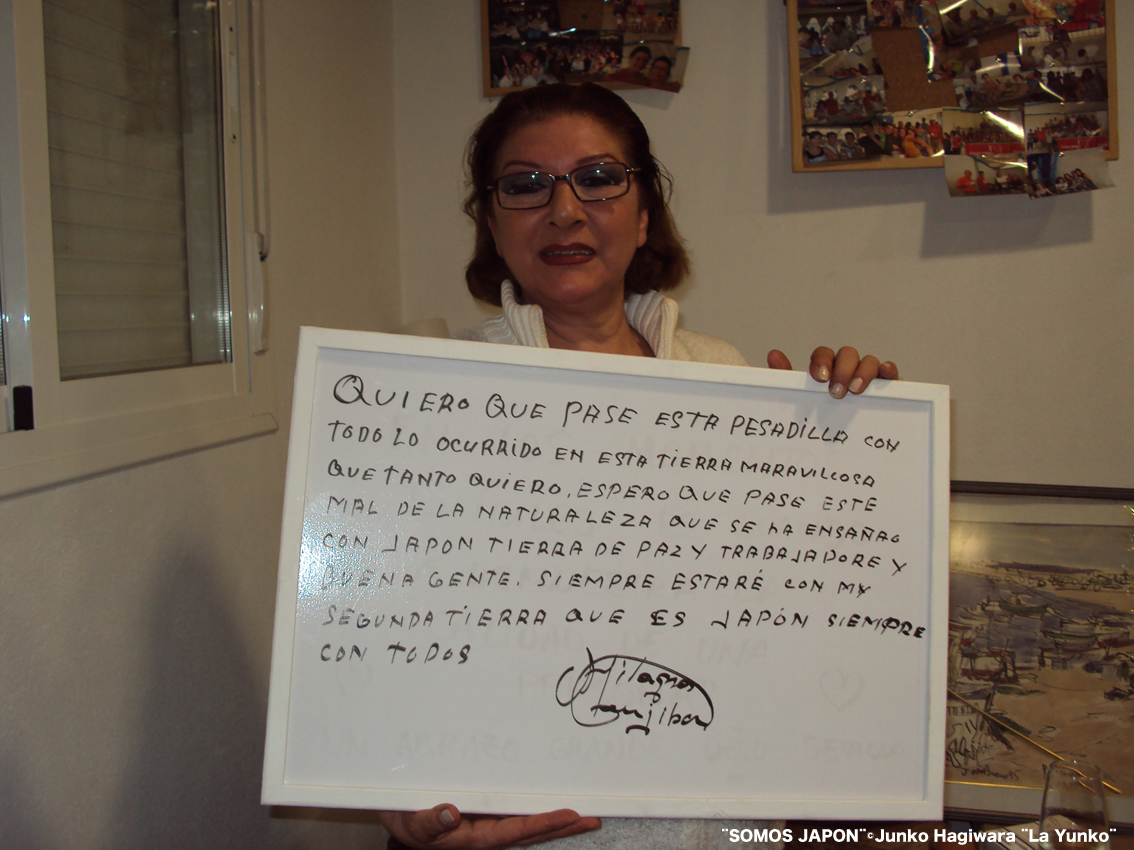 QUIERO QUE PASE ESTA PESADILLA CON
TODO LO OCURRIDO EN ESTA TIERRA MARAVILLOSA
QUE TANTO QUIERO. ESPERO QUE PASE ESTE
MAL DE LA NATURALEZA QUE SE HA ENSAÑAO
CON JAPON TIERRA DE PAZ Y TRABAJADORE Y
BUENA GENTE. SIEMPRE ESTARÉ CON MY
SEGUNDA TIERRA QUE ES JAPÓN SIEMPRE
CON TODOS
Milagros
¨SOMOS JAPON¨©Junko Hagiwara ¨La Yunko¨